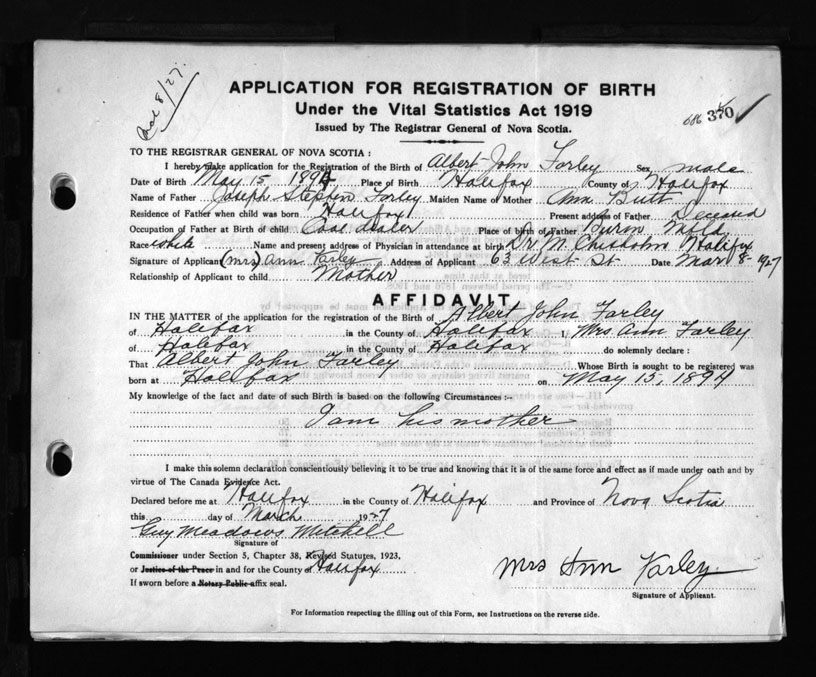 Mar 8/27.
APPLICATION FOR REGISTRATION OF BIRTH
Under the Vital Statistics Act 1919
Issued by The Registrar General of Nova Scotia.
686 370
TO THE REGISTRAR GENERAL OF NOVA SCOTIA:
I hereby make application for the Registration of the Birth of Albert John Farley Sex male
Date of Birth May 15 1894 Place of Birth Halifax County of Halifax
Name of Father Joseph Stephen Farley Maiden Name of Mother Ann Butt
Residence of Father when child was born Halifax Present address of Father Deceased
Occupation of Father at Birth of child Coal dealer Place of birth of Father Burin Nfld
Race white Name and present address of Physician in attendance at birth Dr. M. Chisholm Halifax
Signature of Applicant (mrs) Ann Farley Address of Applicant 63 West St Date Mar 8-1927
Relationship of Applicant to child Mother
AFFIDAVIT
IN THE MATTER of the application for the registration of the Birth of Albert John Farley
of Halifax in the County of Halifax I, Mrs Ann Farley
of Halifax in the County of Halifax do solemnly declare:
That Albert John Farley Whose Birth is sought to be registered was
born at Halifax on May 15, 1894
My knowledge of the fact and date of such Birth is based on the following Circumstances:-
I am his mother
I make this solemn declaration conscientiously believing it to be true and knowing that it is of the same force and effect as if made under oath and by
virtue of The Canada Evidence Act.
Declared before me at Halifax in the County of Halifax and Province of Nova Scotia
this day of March 1927
Guy Meadows Mitchell
Signature of
Commissioner under Section 5, Chapter 38, Revised Statutes, 1923,
or Justice of the Peace in and for the County of Halifax
If sworn before a Notary Public affix seal.
Mrs Ann Farley
Signature of Applicant.
For Information respecting the filling out of this Form, see Instructions on the reverse side.